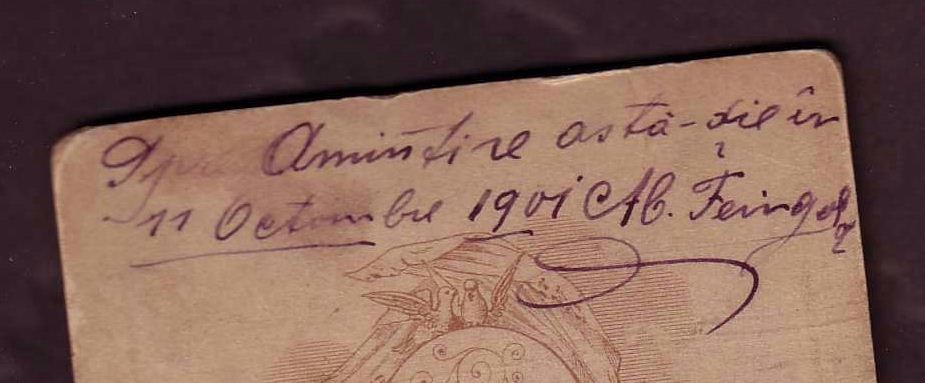 Spre Amintire astă-die în
11 Octombre 1901 Ab. Feingold